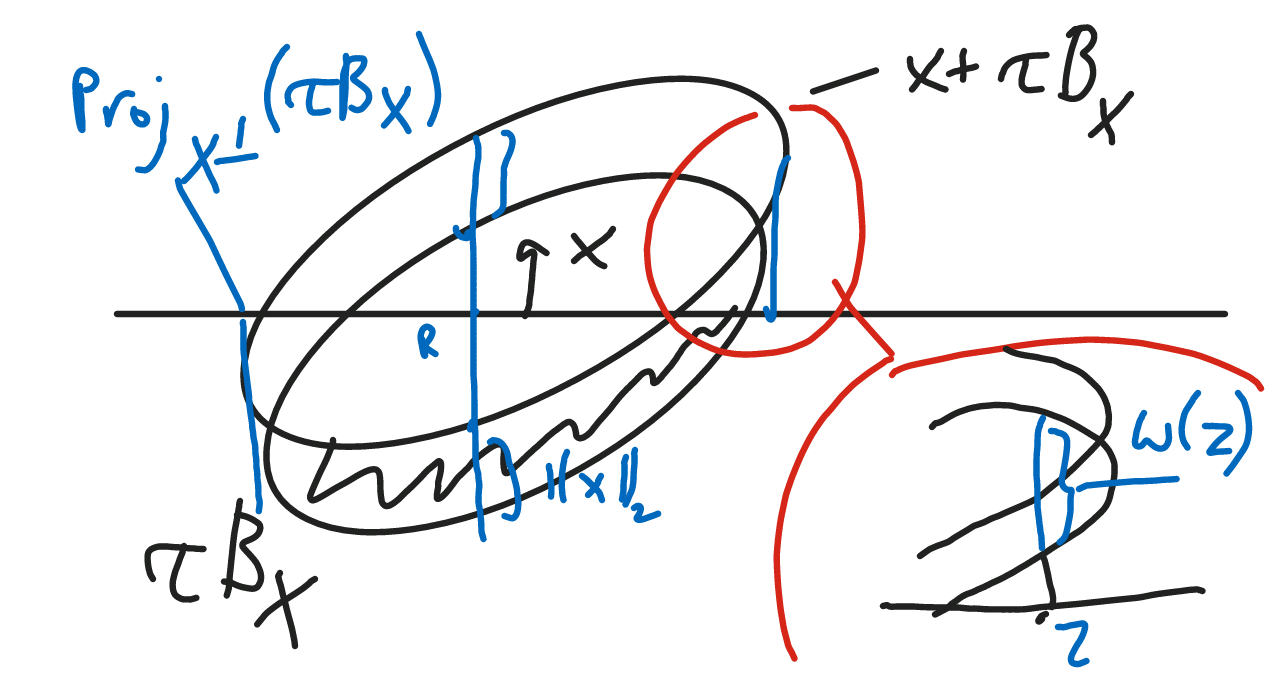 Proj_{X^⊥}(τB_X)
x + τB_X
x
R
‖x‖_2
ω(z)
τB_X
z